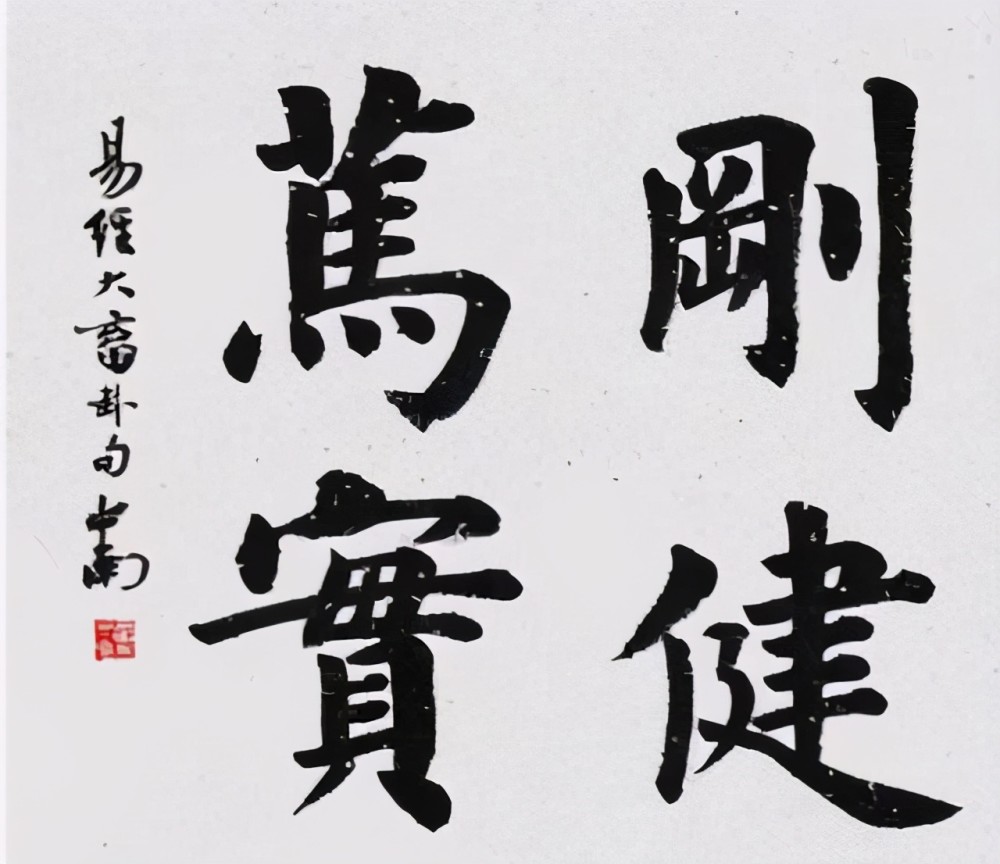 剛健
篤實
易經大畜卦句